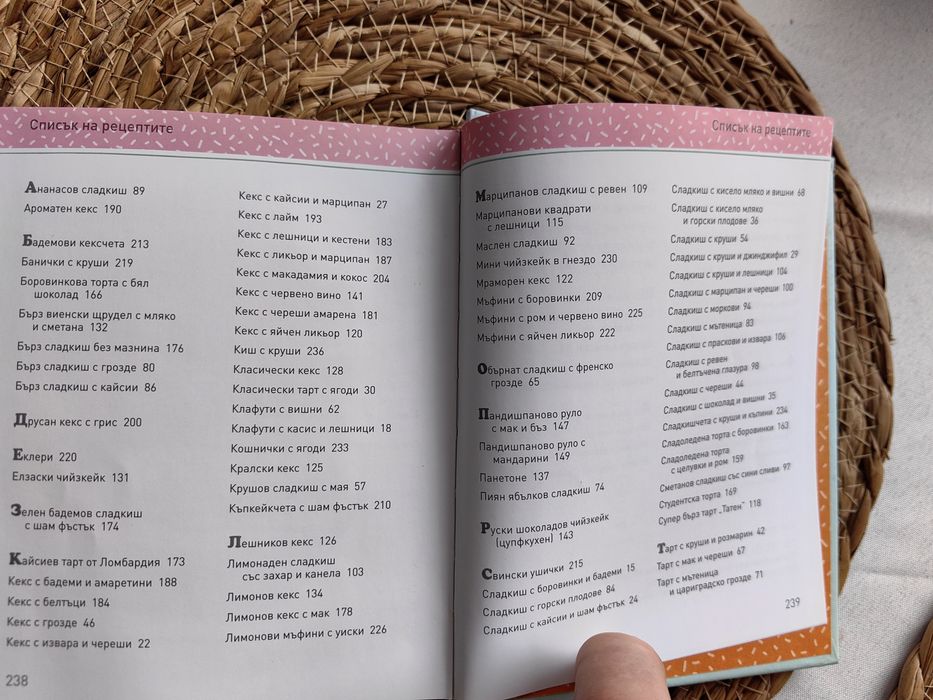 Списък на рецептите
Ананасов сладкиш 89
Ароматен кекс 190
Бадемови кексчета 213
Банички с круши 219
Боровинкова торта с бял
шоколад 166
Бърз виенски щрудел с мляко
и сметана 132
Бърз сладкиш без мазнина 176
Бърз сладкиш с грозде 80
Бърз сладкиш с кайсии 86
Друсан кекс с грис 200
Еклери 220
Елзаски чийзкейк 131
Зелен бадемов сладкиш
с шам фъстък 174
Кайсиев тарт от Ломбардия 173
Кекс с бадеми и амаретини 188
Кекс с белтъци 184
Кекс с грозде 46
Кекс с извара и череши 22
Кекс с кайсии и марципан 27
Кекс с лайм 193
Кекс с лешници и кестени 183
Кекс с ликьор и марципан 187
Кекс с макадамия и кокос 204
Кекс с червено вино 141
Кекс с череши амарена 181
Кекс с яйчен ликьор 120
Киш с круши 236
Класически кекс 128
Класически тарт с ягоди 30
Клафути с вишни 62
Клафути с касис и лешници 18
Кошнички с ягоди 233
Кралски кекс 125
Крушов сладкиш с мая 57
Къпкейкчета с шам фъстък 210
Лешников кекс 126
Лимонаден сладкиш
със захар и канела 103
Лимонов кекс 134
Лимонов кекс с мак 178
Лимонови мъфини с уиски 226
238
Списък на рецептите
Марципанов сладкиш с ревен 109
Марципанови квадрати
с лешници 115
Маслен сладкиш 92
Мини чийзкейк в гнездо 230
Мраморен кекс 122
Мъфини с боровинки 209
Мъфини с ром и червено вино 225
Мъфини с яйчен ликьор 222
Обърнат сладкиш с френско
грозде 65
Пандишпаново руло
с мак и бъз 147
Пандишпаново руло с
мандарини 149
Панетоне 137
Пиян ябълков сладкиш 74
Руски шоколадов чийзкейк
(цупфкухен) 143
Свински ушички 215
Сладкиш с боровинки и бадеми 15
Сладкиш с горски плодове 84
Сладкиш с кайсии и шам фъстък 24
Сладкиш с кисело мляко и вишни 68
Сладкиш с кисело мляко
и горски плодове 36
Сладкиш с круши 54
Сладкиш с круши и джинджифил 29
Сладкиш с круши и лешници 104
Сладкиш с марципан и череши 100
Сладкиш с моркови 94
Сладкиш с мътеница 83
Сладкиш с праскови и извара 106
Сладкиш с ревен
и белтъчена глазура 98
Сладкиш с череши 44
Сладкиш с шоколад и вишни 35
Сладкишчета с круши и къпини 234
Сладоледена торта с боровинки 163
Сладоледена торта
с целувки и ром 159
Сметанов сладкиш със сини сливи 97
Студентска торта 169
Супер бърз тарт „Татен“ 118
Тарт с круши и розмарин 42
Тарт с мак и череши 67
Тарт с мътеница
и цариградско грозде 71
239